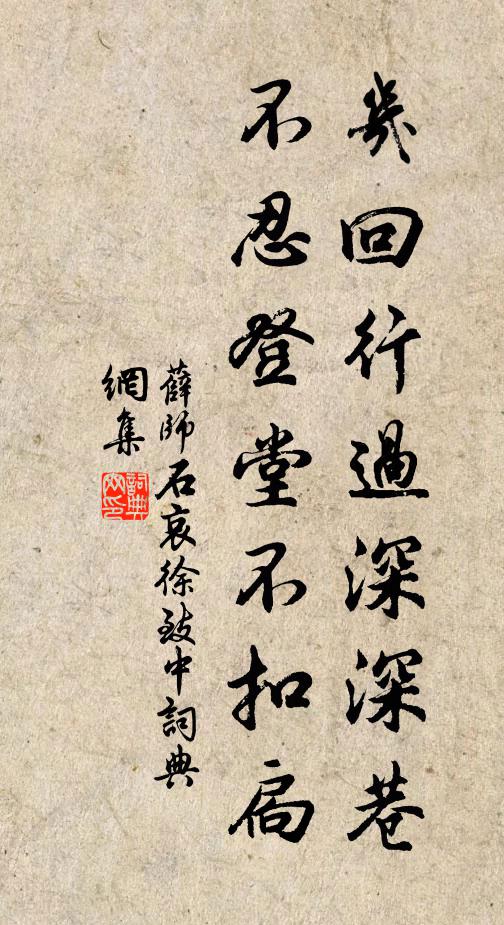 幾回行過深深巷
不忍登堂不扣扃
薛師石哀徐致中詞典
網集
詞典
網印